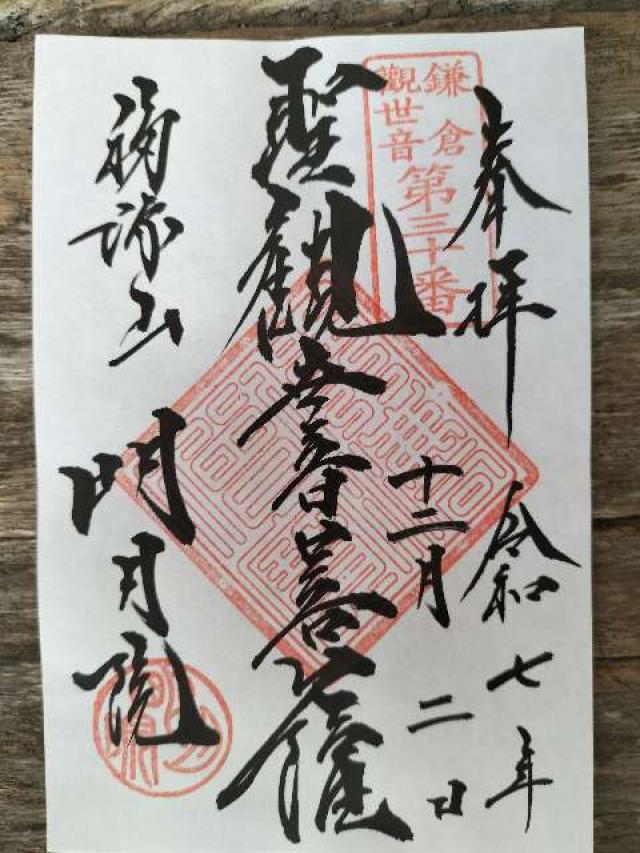 奉拝
令和七年
十二月
二日
鎌倉
觀世音
第三十番
聖觀世音菩薩
福源山
明月院